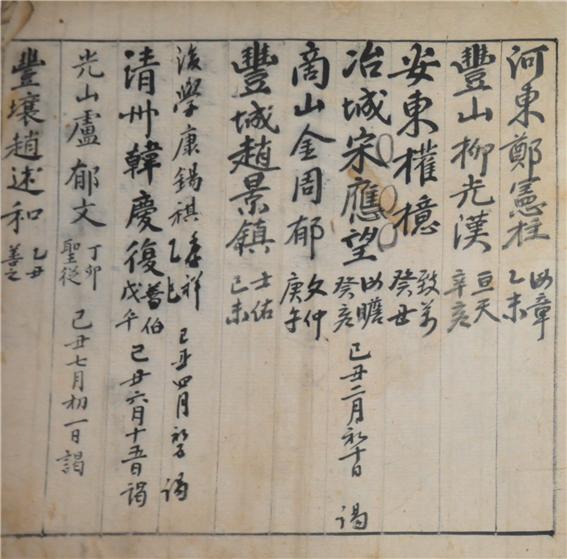 河東鄭憲柱 汝章 乙未
豊山柳光漢 亘天 辛亥
安東權檍 致万 癸丑
冶城宋應望 汝瞻 癸亥 己丑二月初十日 謁
商山金周郁 文仲 庚午
豊城趙景鎮 士佑 己未
後學康錫祺 祥 乙 己丑四月初 謁
清州韓慶復 普伯 戊午 己丑六月十五日 謁
光山盧郁文 丁卯 聖從 己丑七月初一日 謁
豊壤趙述和 乙丑 善之